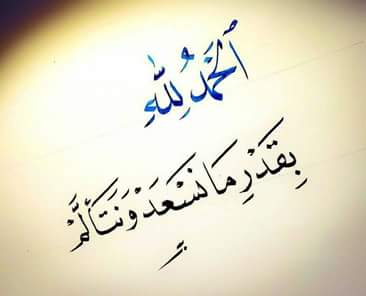 ٱلحَمدُ لِلّٰهِ
بِقَدْرِ مَا نَسْعَدْ وَنَتَأَلَّمْ